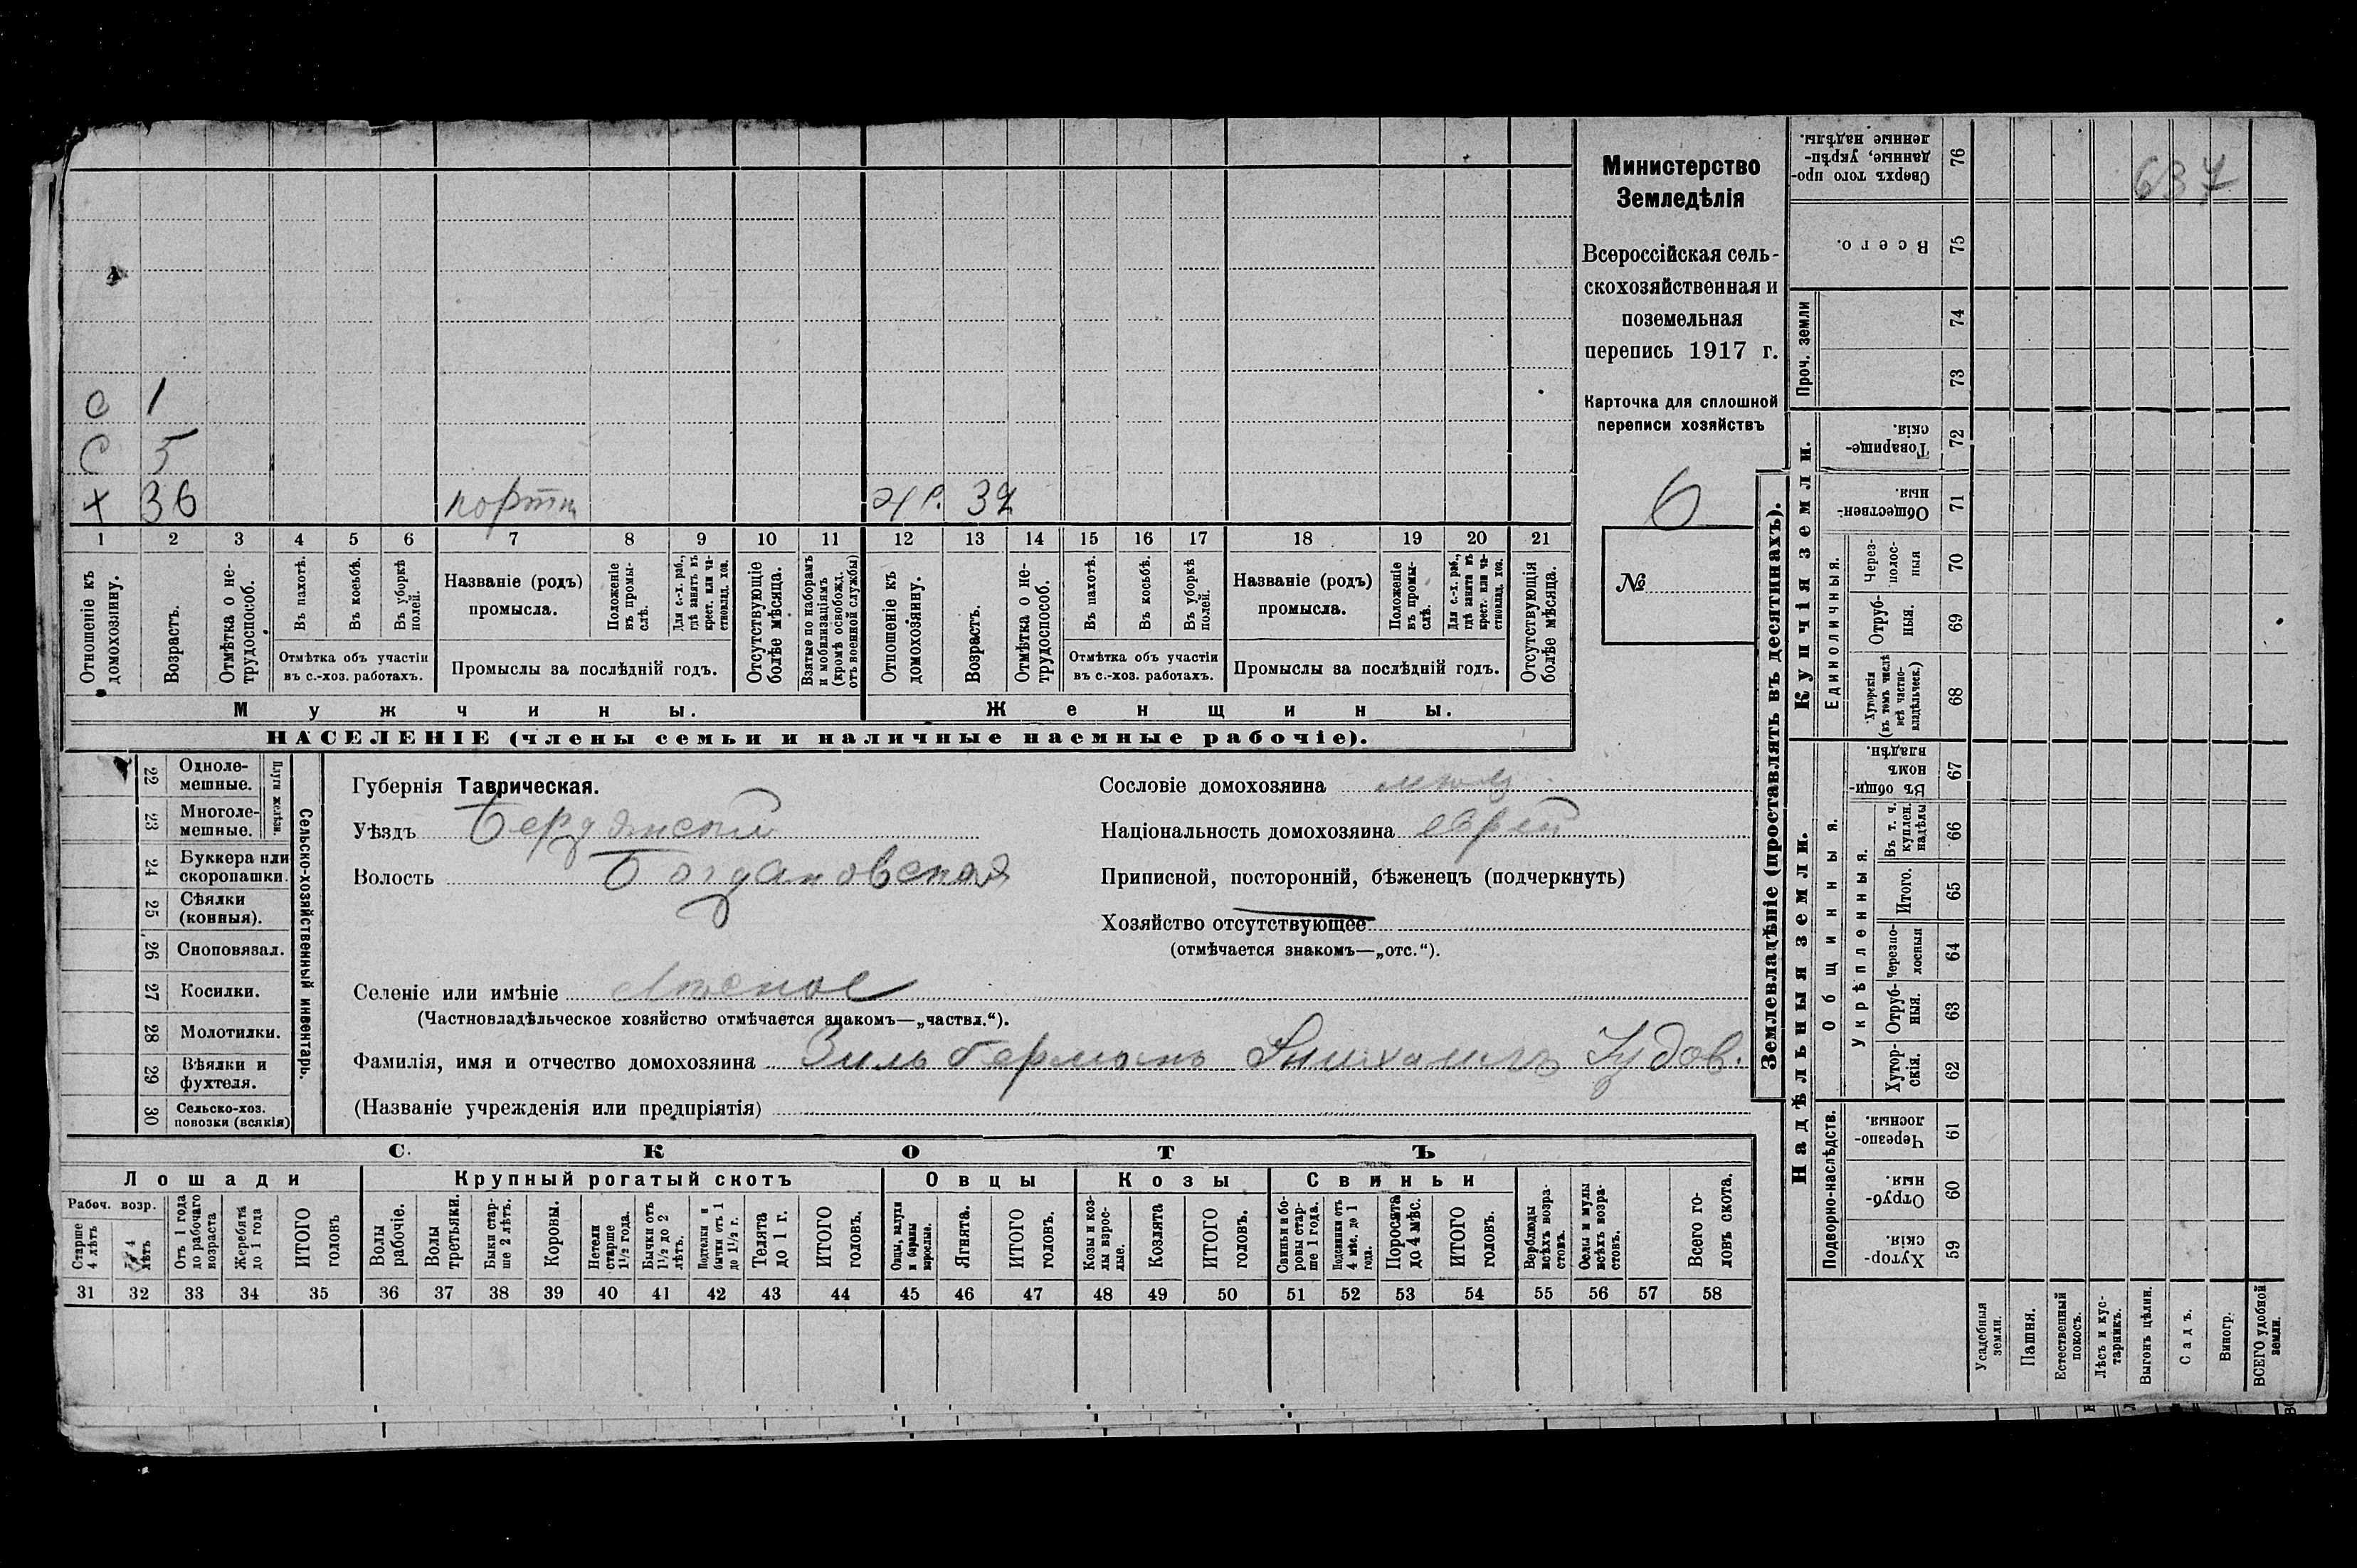 637
Министерство
Земледѣлія
Всероссійская сель-
скохозяйственная и
поземельная
перепись 1917 г.
Карточка для сплошной
переписи хозяйствъ
6
№
С 1
С 5
х 36 портн 37
1 2 3 4 5 6 7 8 9 10 11 12 13 14 15 16 17 18 19 20 21
Отношеніе къ домохозяину.
Возрастъ.
Отмѣтка о не-трудоспособ.
Въ пахотѣ.
Въ косьбѣ.
Въ уборкѣ полей.
Отмѣтка объ участіи
въ с.-хоз. работахъ.
Названіе (родъ)
промысла.
Положеніе въ промы-слѣ.
Для с.-х. раб., гдѣ занятъ въ крест. или ча-стновлад. хоз.
Промыслы за послѣдній годъ.
Отсутствующіе болѣе мѣсяца.
Взятые по наборамъ и мобилизаціямъ (кромѣ освобожд. отъ военной службы)
Отношеніе къ домохозяину.
Возрастъ.
Отмѣтка о не-трудоспособ.
Въ пахотѣ.
Въ косьбѣ.
Въ уборкѣ полей.
Отмѣтка объ участіи
въ с.-хоз. работахъ.
Названіе (родъ)
промысла.
Положеніе въ промы-слѣ.
Для с.-х. раб., гдѣ занята въ крест. или ча-стновлад. хоз.
Промыслы за послѣдній годъ.
Отсутствующія болѣе мѣсяца.
Мужчины. Женщины.
НАСЕЛЕНІЕ (члены семьи и наличные наемные рабочіе).
22 Одноле-мешные.
23 Многоле-мешные.
Плуги желѣзн.
24 Буккера или скоропашки.
25 Сѣялки (конныя).
26 Сноповязал.
27 Косилки.
28 Молотилки.
29 Вѣялки и фухтеля.
30 Сельско-хоз. повозки (всякія)
Сельско-хозяйственный инвентарь.
Губернія Таврическая.
Уѣздъ Бердянскій
Волость Богдановская
Сословіе домохозяина мѣщ
Національность домохозяина еврей
Приписной, посторонній, бѣженецъ (подчеркнуть)
Хозяйство отсутствующее
(отмѣчается знакомъ—„отс.“).
Селеніе или имѣніе
(Частновладѣльческое хозяйство отмѣчается знакомъ—„частвл.“).
Фамилія, имя и отчество домохозяина Зильберманъ Іудов.
(Названіе учрежденія или предпріятія)
СКОТЪ
Лошади Крупный рогатый скотъ Овцы Козы Свиньи
Рабоч. возр.
Старше 4 лѣтъ
4 лѣтъ
Отъ 1 года до рабочаго возраста
Жеребята до 1 года
ИТОГО головъ
Волы рабочіе.
Волы третьяки.
Быки стар-ше 2 лѣтъ.
Коровы.
Нетели старше 1½ года.
Бычки отъ 1½ до 2 лѣтъ.
Подтелки и бычки отъ 1 до 1½ г.
Телята до 1 г.
ИТОГО головъ.
Овцы, валухи и бараны взрослые.
Ягнята.
ИТОГО головъ.
Козы и коз-лы взрос-лые.
Козлята
ИТОГО головъ.
Свиньи и бо-ровы стар-ше 1 года.
Подсвинки отъ 4 мѣс. до 1 года.
Поросята до 4 мѣс.
ИТОГО головъ.
Верблюды всѣхъ возра-стовъ.
Ослы и мулы всѣхъ возра-стовъ.
Всего го-ловъ скота.
31 32 33 34 35 36 37 38 39 40 41 42 43 44 45 46 47 48 49 50 51 52 53 54 55 56 57 58
Землевладѣніе (проставлять въ десятинахъ).
Купчія земли.
Надѣльныя земли.
Сверхъ того про-данные, укрѣп-ленные надѣлы. 76
Всего. 75
Проч. земли
74
73
Товарище-скія. 72
Обществен-ныя. 71
Единоличныя.
Через-полос-ныя 70
Отруб-ныя. 69
Хуторскія (въ томъ числѣ всѣ частно-владѣльческ.) 68
Общинныя.
Въ общин-номъ владѣн. 67
Укрѣпленныя.
Въ т. ч. куплен. надѣлы 66
Итого. 65
Черезпо-лосныя 64
Отруб-ныя. 63
Хутор-скія. 62
Подворно-наслѣдств.
Черезпо-лосныя. 61
Отруб-ныя. 60
Хутор-скія. 59
Усадебныя земли.
Пашня.
Естественный покосъ.
Лѣсъ и кус-тарникъ.
Выгонъ цѣлин.
Садъ.
Виногр.
ВСЕГО удобной земли.